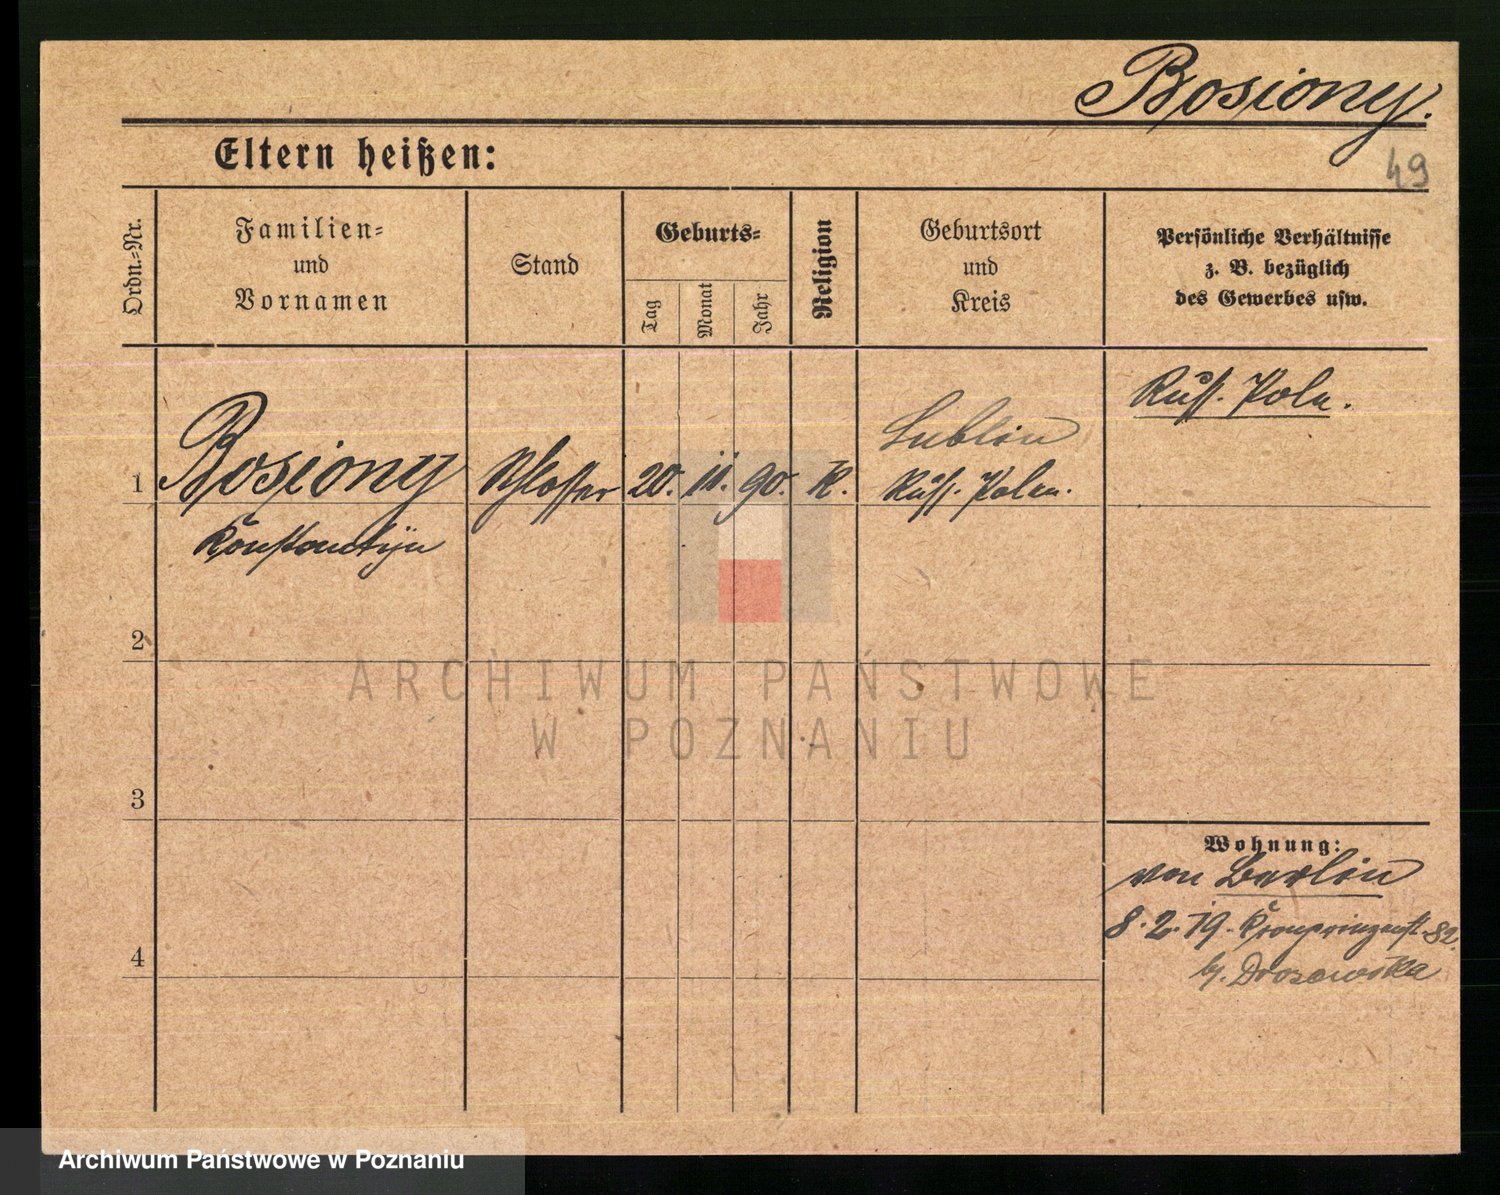 Bosiony.
49
Eltern heißen:
Ordn.-Nr.
Familien-
und
Vornamen
Stand
Geburts-
Tag
Monat
Jahr
Religion
Geburtsort
und
Kreis
Persönliche Verhältnisse
z. B. bezüglich
des Gewerbes usw.
Russ. Pole.
Lublin
1 Bosiony Schlosser 20. 11. 90. K. Russ. Polen.
Konstantijn
2
3
4
Wohnung:
von Berlin
8. 2. 19. Kronprinzenst. 82.
b/. Drozowska
ARCHIWUM PAŃSTWOWE
W POZNANIU
Archiwum Państwowe w Poznaniu